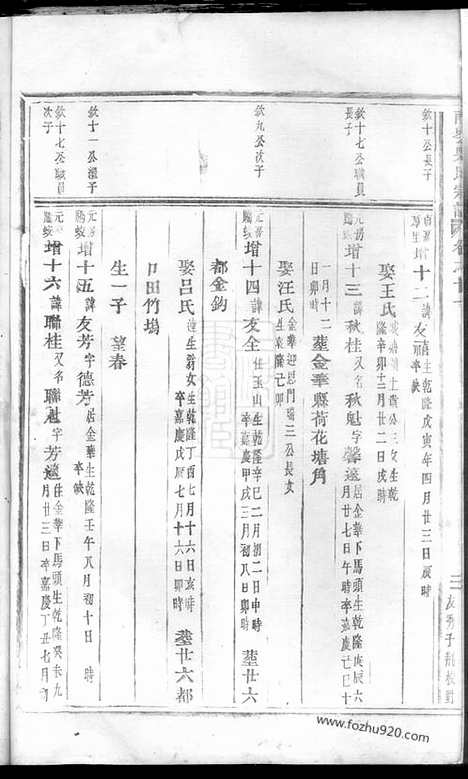 欽十公長子
增十二 諱友 生乾隆戊寅年四月廿三日辰時
卒缺
娶王氏 公三女生乾
隆辛卯十二月廿二日戌時
欽十七公職員
長子
增十三 諱秋桂又名秋魁字馨遠 居金華下馬頭生乾隆庚辰六
月廿七日午時卒嘉慶己巳十
一月十二
日卯時
葬金華縣荷花塘角
娶汪氏 金華迎恩門瑞三公長女
生乾隆己卯
欽九公次子
增十四 諱友全 住玉山生乾隆辛巳二月初二日申時
卒嘉慶甲戌三月初八日卯時
葬廿六
都金鈎
娶呂氏 女生乾隆丁酉七月十六日亥時
卒嘉慶戊辰七月十六日卯時
葬廿六都
口田竹塢
生一子 望春
欽十一公繼子
增十五 諱友芳字德芳 居金華生乾隆壬午八月初十日 時
卒缺
欽十七公職員
次子
增十六 諱聯桂又名聯魁字芳遠 住金華下馬頭生乾隆癸未九
月廿三日卒嘉慶丁丑七月初
三
www.fozhu920.com